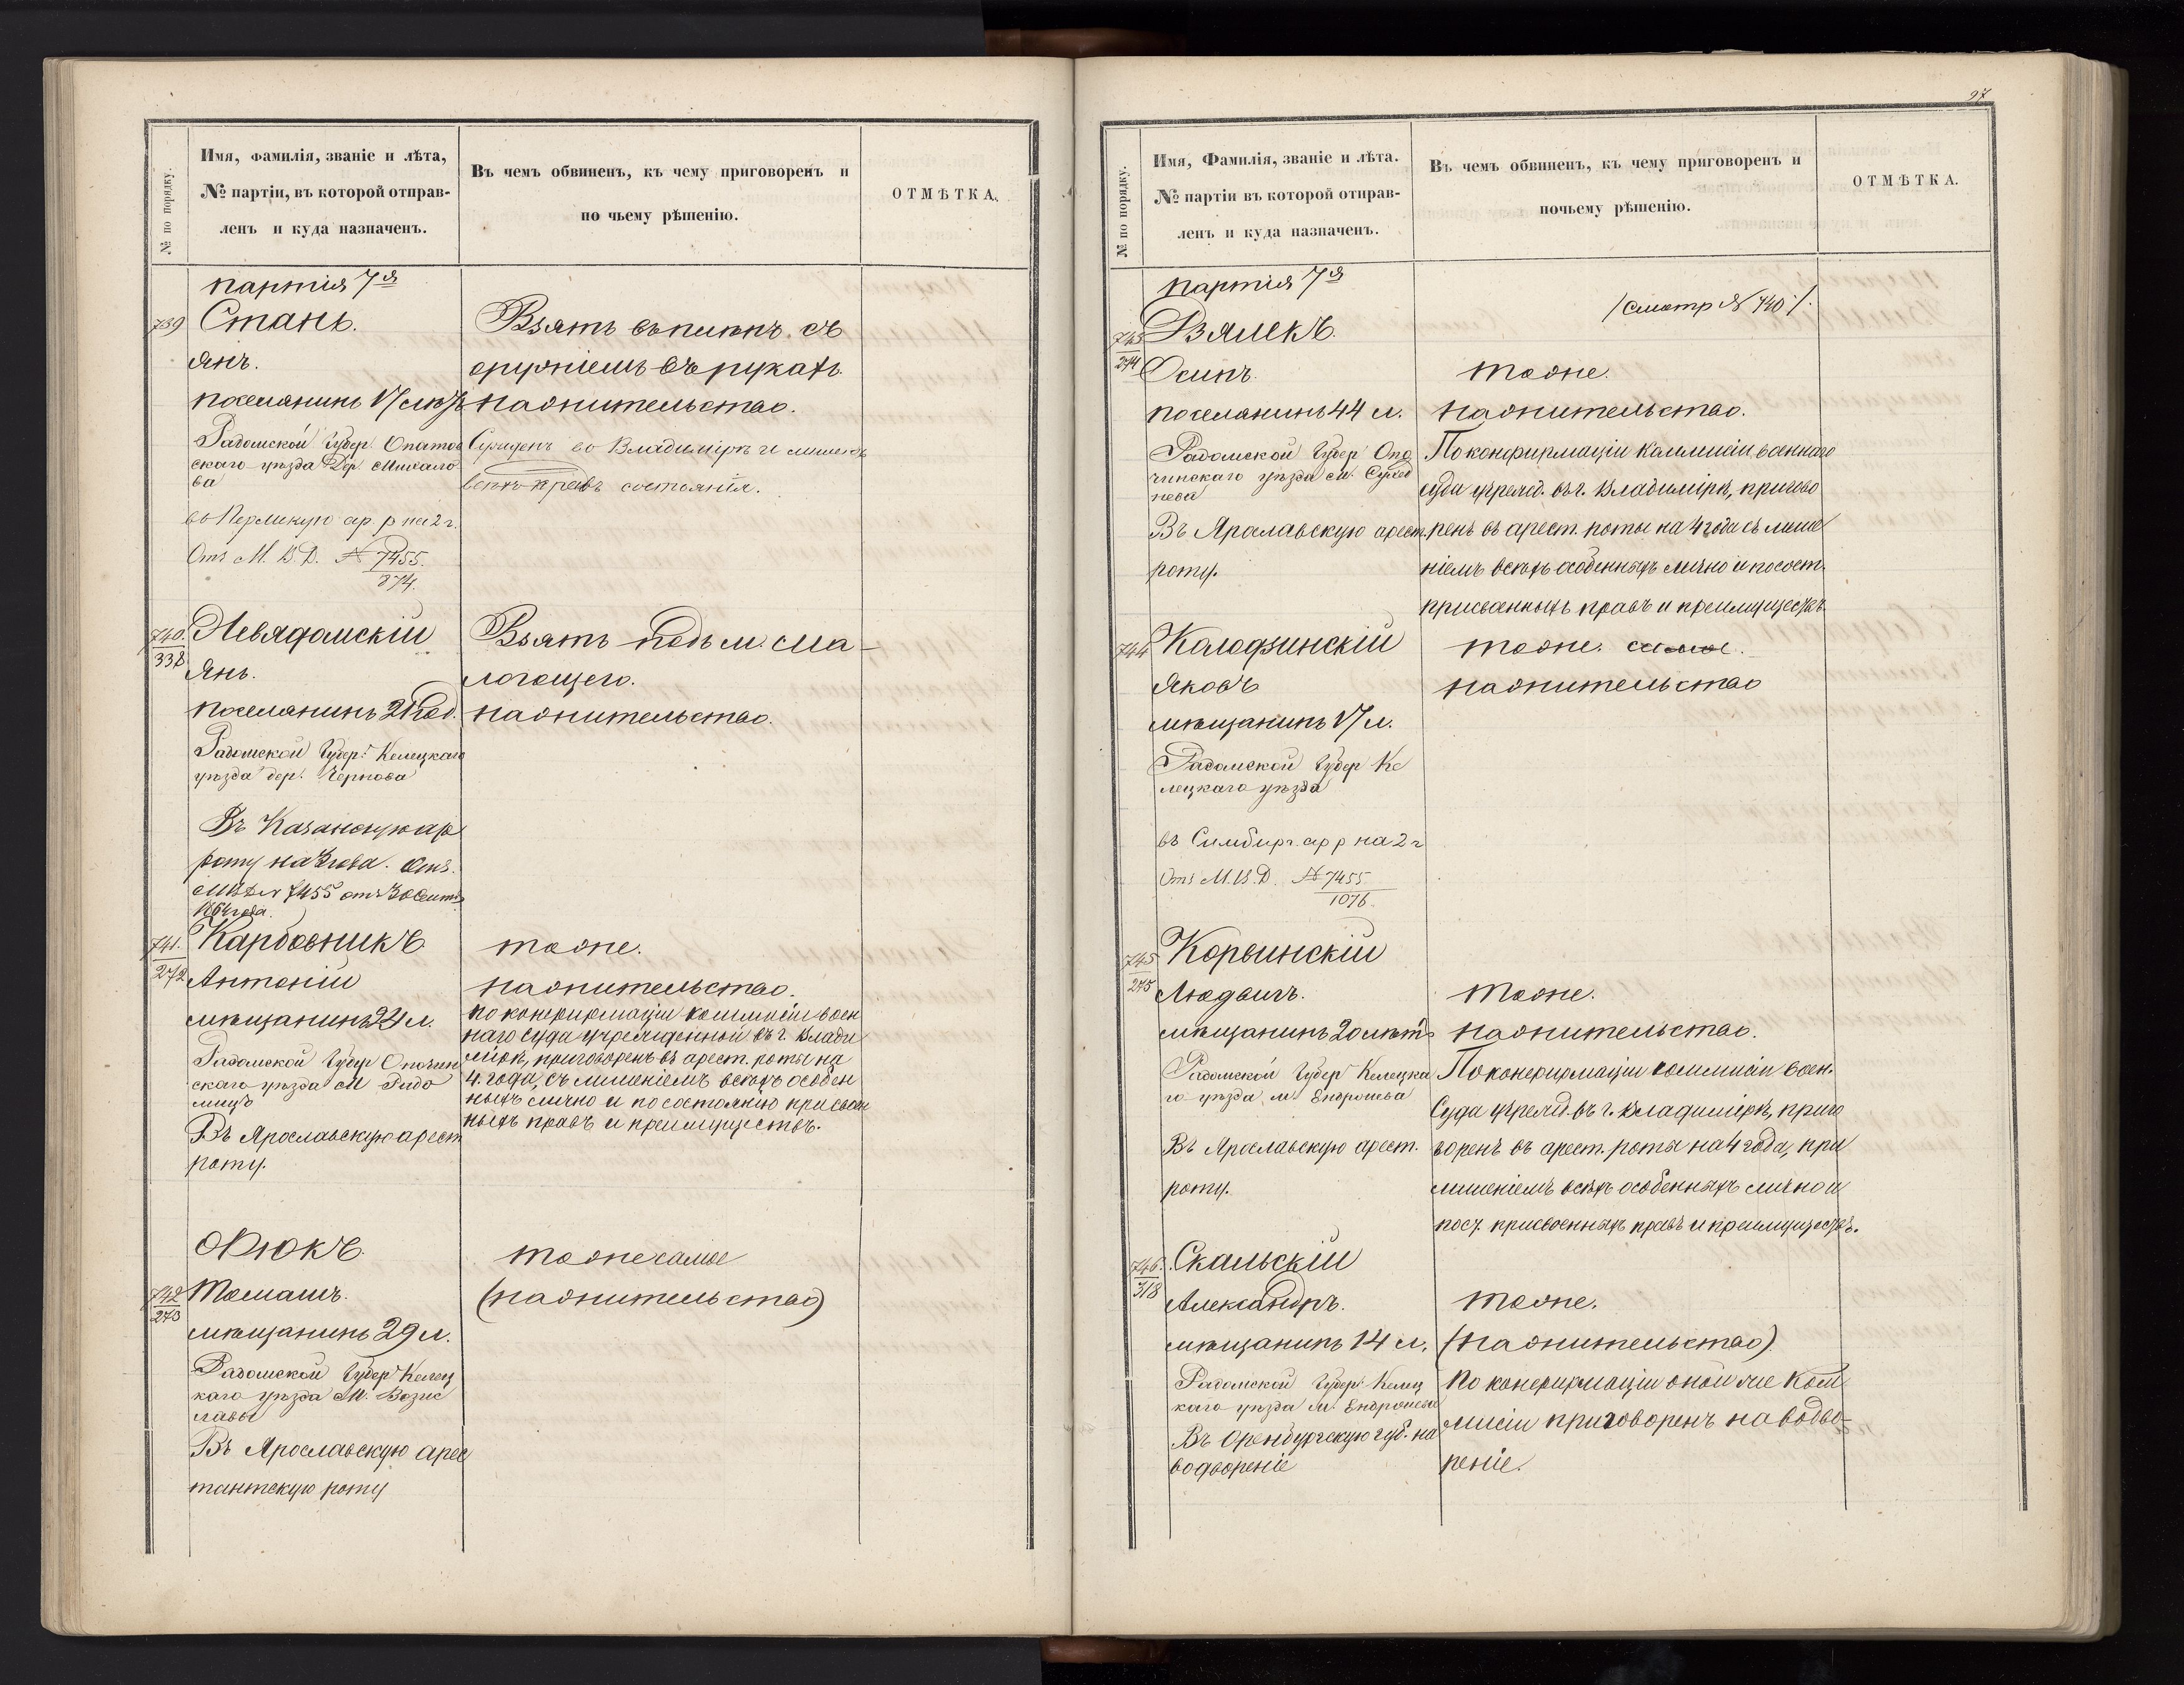 № по порядку.
Имя, фамилія, званіе и лѣта,
№ партіи, въ которой отправ-
ленъ и куда назначенъ.
Въ чемъ обвиненъ, къ чему приговоренъ и
по чьему рѣшенію.
ОТМѢТКА.
партія 7я
739
Стань.
Янъ.
поселянинъ 17 лѣтъ
Радомской Губер. Опатов
скаго уѣзда Дер.
ва
въ Пермскую ар. р на 2 г.
Отъ М. В. Д. № 7455.
874.
Взятъ въ съ
оружіемъ въ рукахъ.
на жительство.
Сужденъ во Владимірѣ и лишенъ
всѣхъ правъ состоянія.
740.
338
Невядомскій
Янъ.
поселянинъ 21 год.
Радомской Губер. Келецкаго
уѣзда дер. Чернова
Въ Казанскую ар
роту на года. Отъ.
М В Д № 7455 отъ 30 Сент
1864 года.
Взятъ подъ м. Ма-
логощего.
на жительство.
741.
272
Карбовникъ
Антоній
мѣщанинъ 24 л.
Радомской Губер Опочин
скаго уѣзда М Радо
мицъ
Въ Ярославскую арест
роту.
тоже.
на жительство.
по конфирмаціи коммисіи воен
наго суда учрежденной въ г. Влади
мірѣ, приговоренъ въ арест. роты на
4. года, съ лишеніемъ всѣхъ особен
ныхъ лично и по состоянію присвоен
ныхъ правъ и преимуществъ.
742
273
Фіюкъ.
Томашъ.
мѣщанинъ 29 л.
Радомской Губер Келец
каго уѣзда М. Водзис
лавы
Въ Ярославскую арес
тантскую роту
тоже самое
(на жительство)
97
№ по порядку.
Имя, Фамилія, званіе и лѣта.
№ партіи въ которой отправ-
ленъ и куда назначенъ.
Въ чемъ обвиненъ, къ чему приговоренъ и
почьему рѣшенію.
ОТМѢТКА.
партія 7я
/смотр № 740/.
743
274
Вялекъ.
Осипъ.
поселянинъ 44 л.
Радомской Губер Опо
чинскаго уѣзда м. Сухед
нева
Въ Ярославскую арест.
роту.
тоже.
на жительство.
По конфирмаціи коммисіи военнаго
суда учрежд. въ г. Владимірѣ, пригово
ренъ въ арест. роты на 4 года съ лише
ніемъ всѣхъ особенныхъ лично и по сост.
присвоенныхъ правъ и преимуществъ.
744
Колодзинскій
Яковъ
мѣщанинъ 17 л.
Радомской Губер Ке
лецкаго уѣзда
въ Симбирс. ар р на 2 г
Отъ М. В. Д. № 7455
1076.
тоже. самое.
на жительство
745
275
Корвинскій
Людвигъ.
мѣщанинъ 20 лѣтъ
Радомской Губер Келецка
го уѣзда м. Ендрошева
Въ Ярославскую арест.
роту.
тоже.
на жительство.
По конфирмаціи коммисіи воен.
Суда учрежд. въ г. Владимірѣ, приго
воренъ въ арест. роты на 4 года, при
лишеніемъ всѣхъ особенныхъ лично и
по сос. присвоенныхъ правъ и преимуществъ.
746.
318
Скальскій
Александръ.
мѣщанинъ 14 л.
Радомской Губер Келец
каго уѣзда м. Ендрошева
Въ Оренбургскую губ. на
водвореніе
тоже.
(на жительство)
По конфирмаціи оной же Ком
мисіи приговоренъ на водво-
реніе.